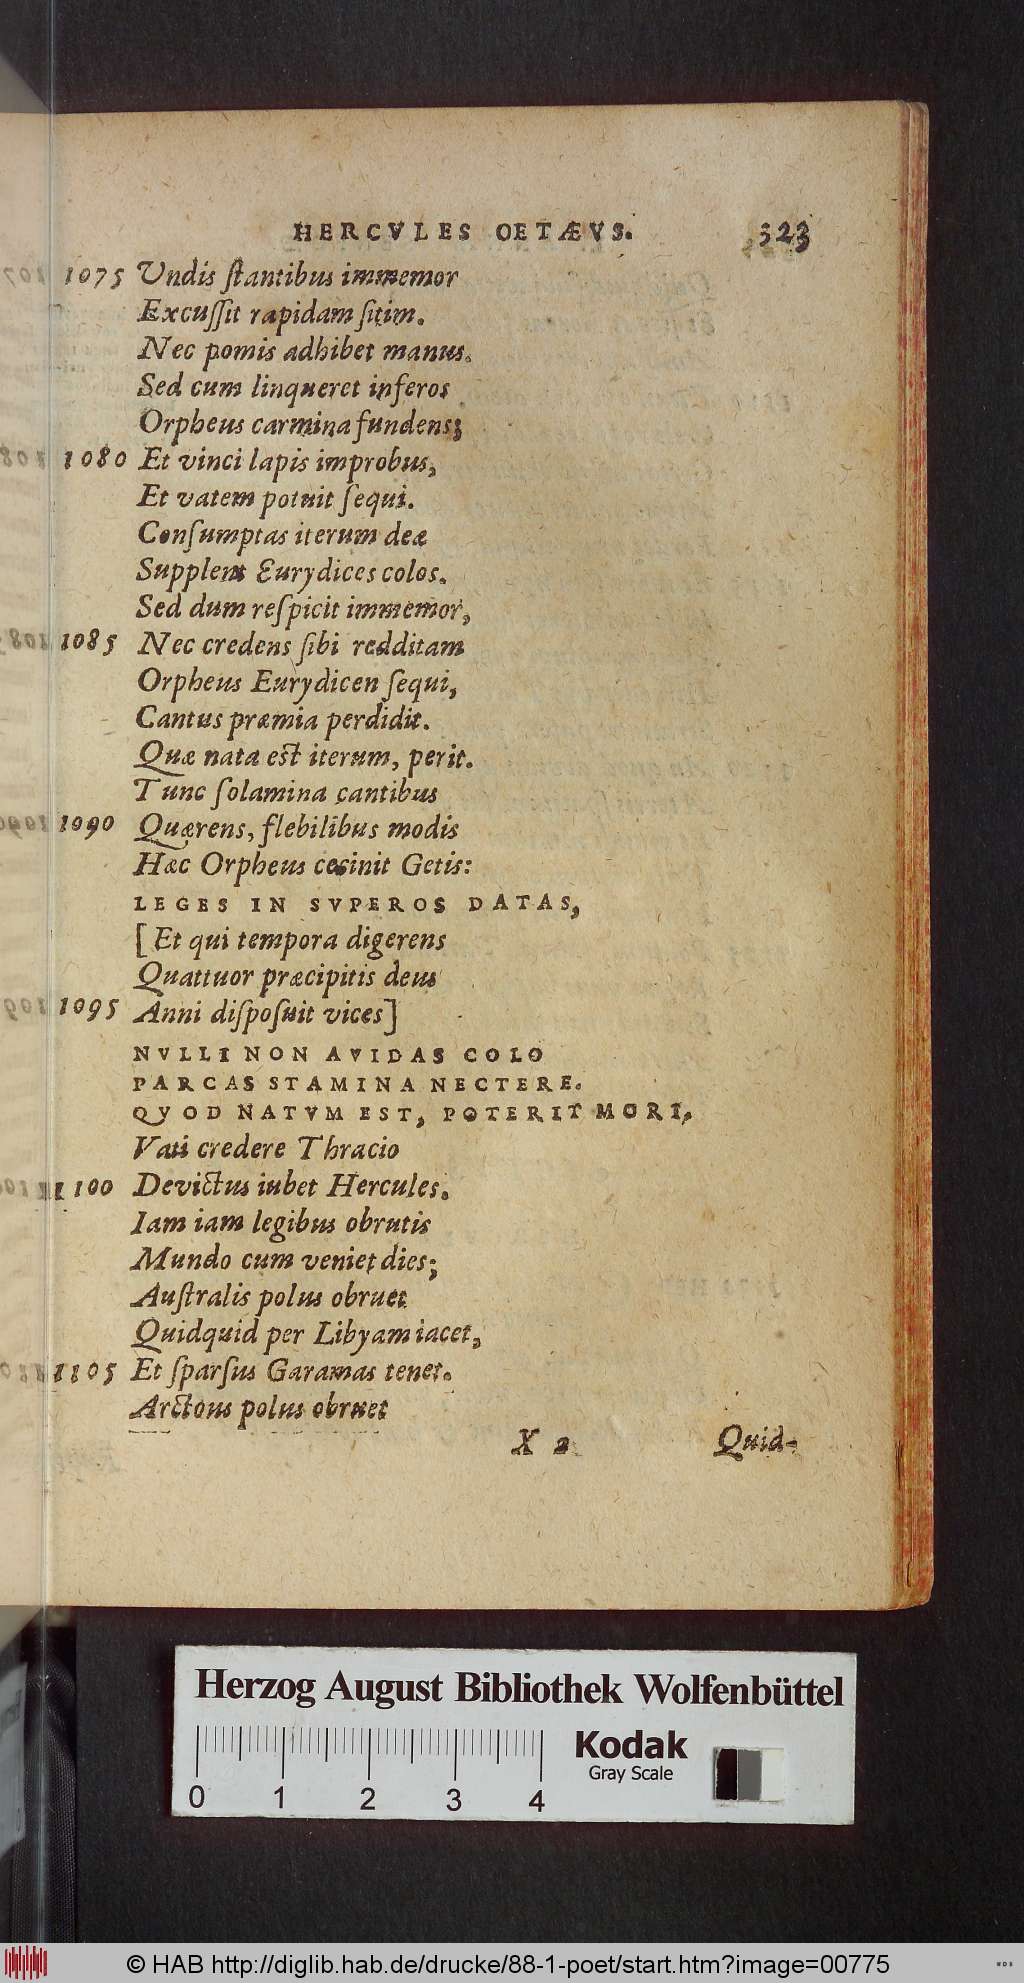 HERCVLES OETÆVS. 323
1075 Undis ſtantibus immemor
Excuſſit rapidam ſitim.
Nec pomis adhibet manus.
Sed cum linqueret inferos
Orpheus carmina fundens;
1080 Et vinci lapis improbus,
Et vatem potuit ſequi.
Conſumptas iterum deæ
Supplent Eurydices colos.
Sed dum reſpicit immemor,
1085 Nec credens ſibi redditam
Orpheus Eurydicen ſequi,
Cantus præmia perdidit.
Quæ nata eſt iterum, perit.
Tunc ſolamina cantibus
1090 Quærens, flebilibus modis
Hæc Orpheus cecinit Getis:
LEGES IN SVPEROS DATAS,
[Et qui tempora digerens
Quattuor præcipitis deus
1095 Anni diſpoſuit vices]
NVLLI NON AVIDAS COLO
PARCAS STAMINA NECTERE.
QVOD NATVM EST, POTERIT MORI,
Vati credere Thracio
1100 Devictus iubet Hercules.
Iam iam legibus obrutis
Mundo cum veniet dies;
Auſtralis polus obruet
Quidquid per Libyam iacet,
1105 Et ſparſus Garamas tenet.
Arctous polus obruet
X 2 Quid-
Herzog August Bibliothek Wolfenbüttel
Kodak
Gray Scale
0 1 2 3 4
© HAB http://diglib.hab.de/drucke/88-1-poet/start.htm?image=00775